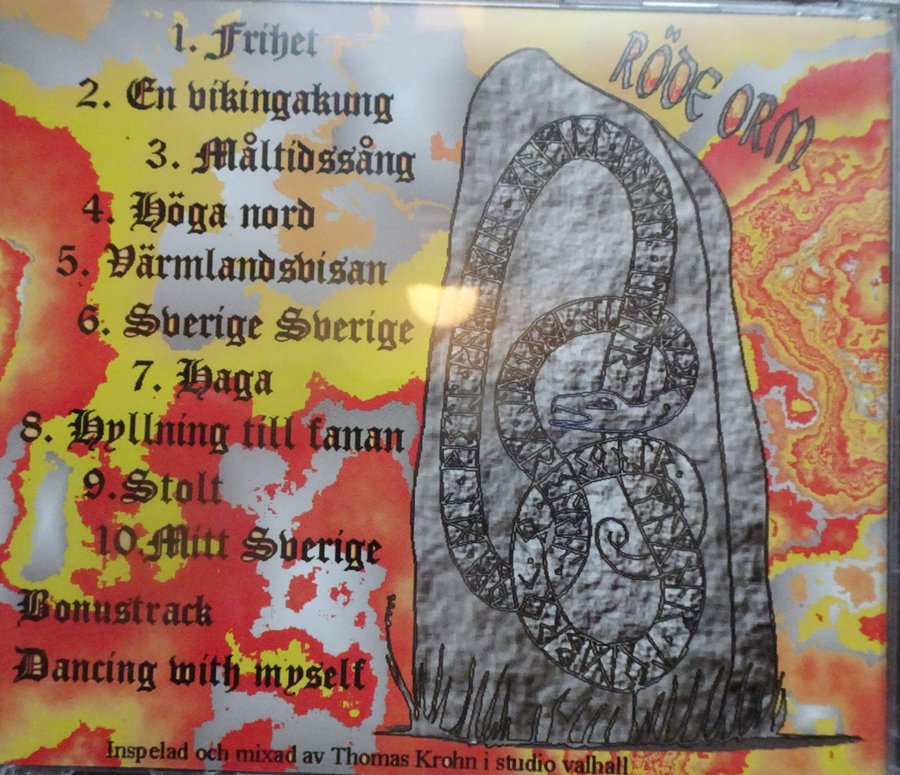 1. Frihet
2. En vikingakung
3. Måltidssång
4. Höga nord
5. Värmlandsvisan
6. Sverige Sverige
7. Haga
8. Hyllning till fanan
9.Stolt
10.Mitt Sverige
Bonustrack
Dancing with myself
RÖDE ORM
Inspelad och mixad av Thomas Krohn i studio valhall